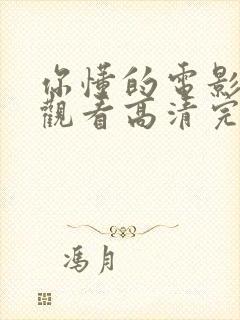 你懂的電影
觀看高清完
馮月